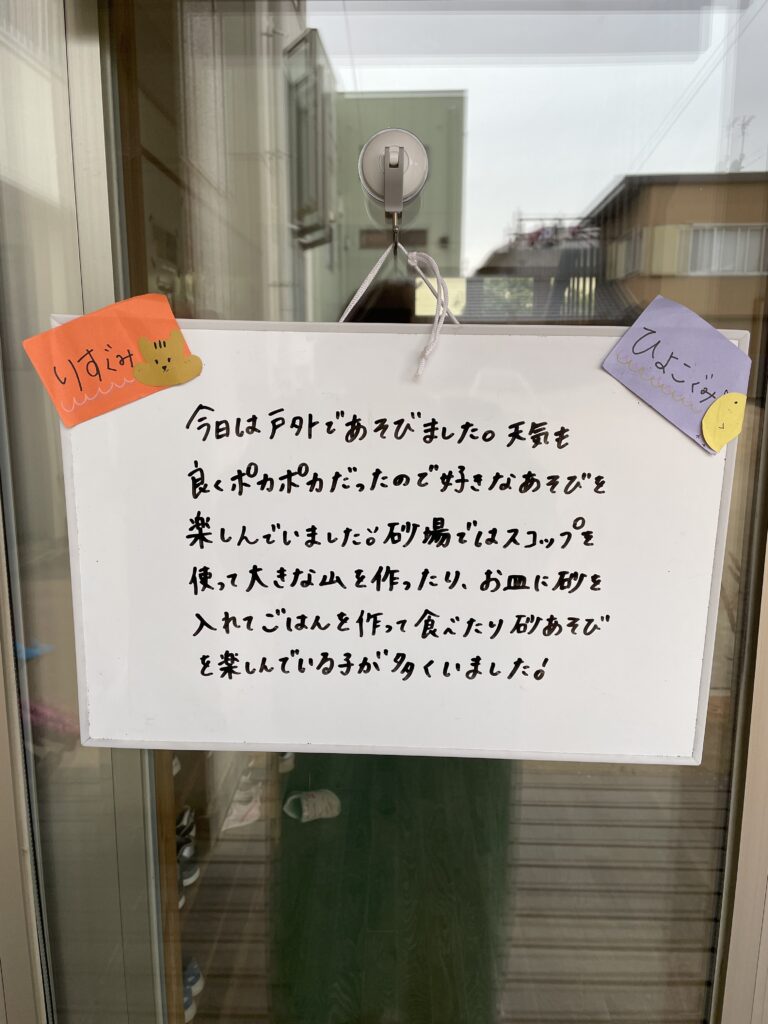 りすぐみ
ひよこぐみ
今日は戸外であそびました。天気も
良くポカポカだったので好きなあそびを
楽しんでいました!砂場ではスコップを
使って大きな山を作ったり、お皿に砂を
入れてごはんを作って食べたり砂あそび
を楽しんでいる子が多くいました!